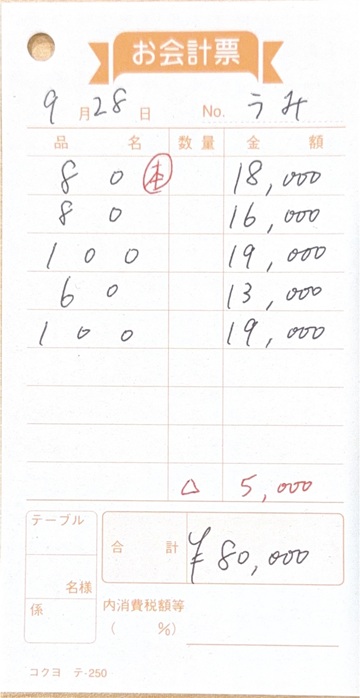 お会計票
9月28日 No. うみ
品名 数量 金額
80 本 18,000
80 16,000
100 19,000
60 13,000
100 19,000
△ 5,000
テーブル
名様
係
合計 ¥80,000
内消費税額等
( %)
コクヨ テ-250